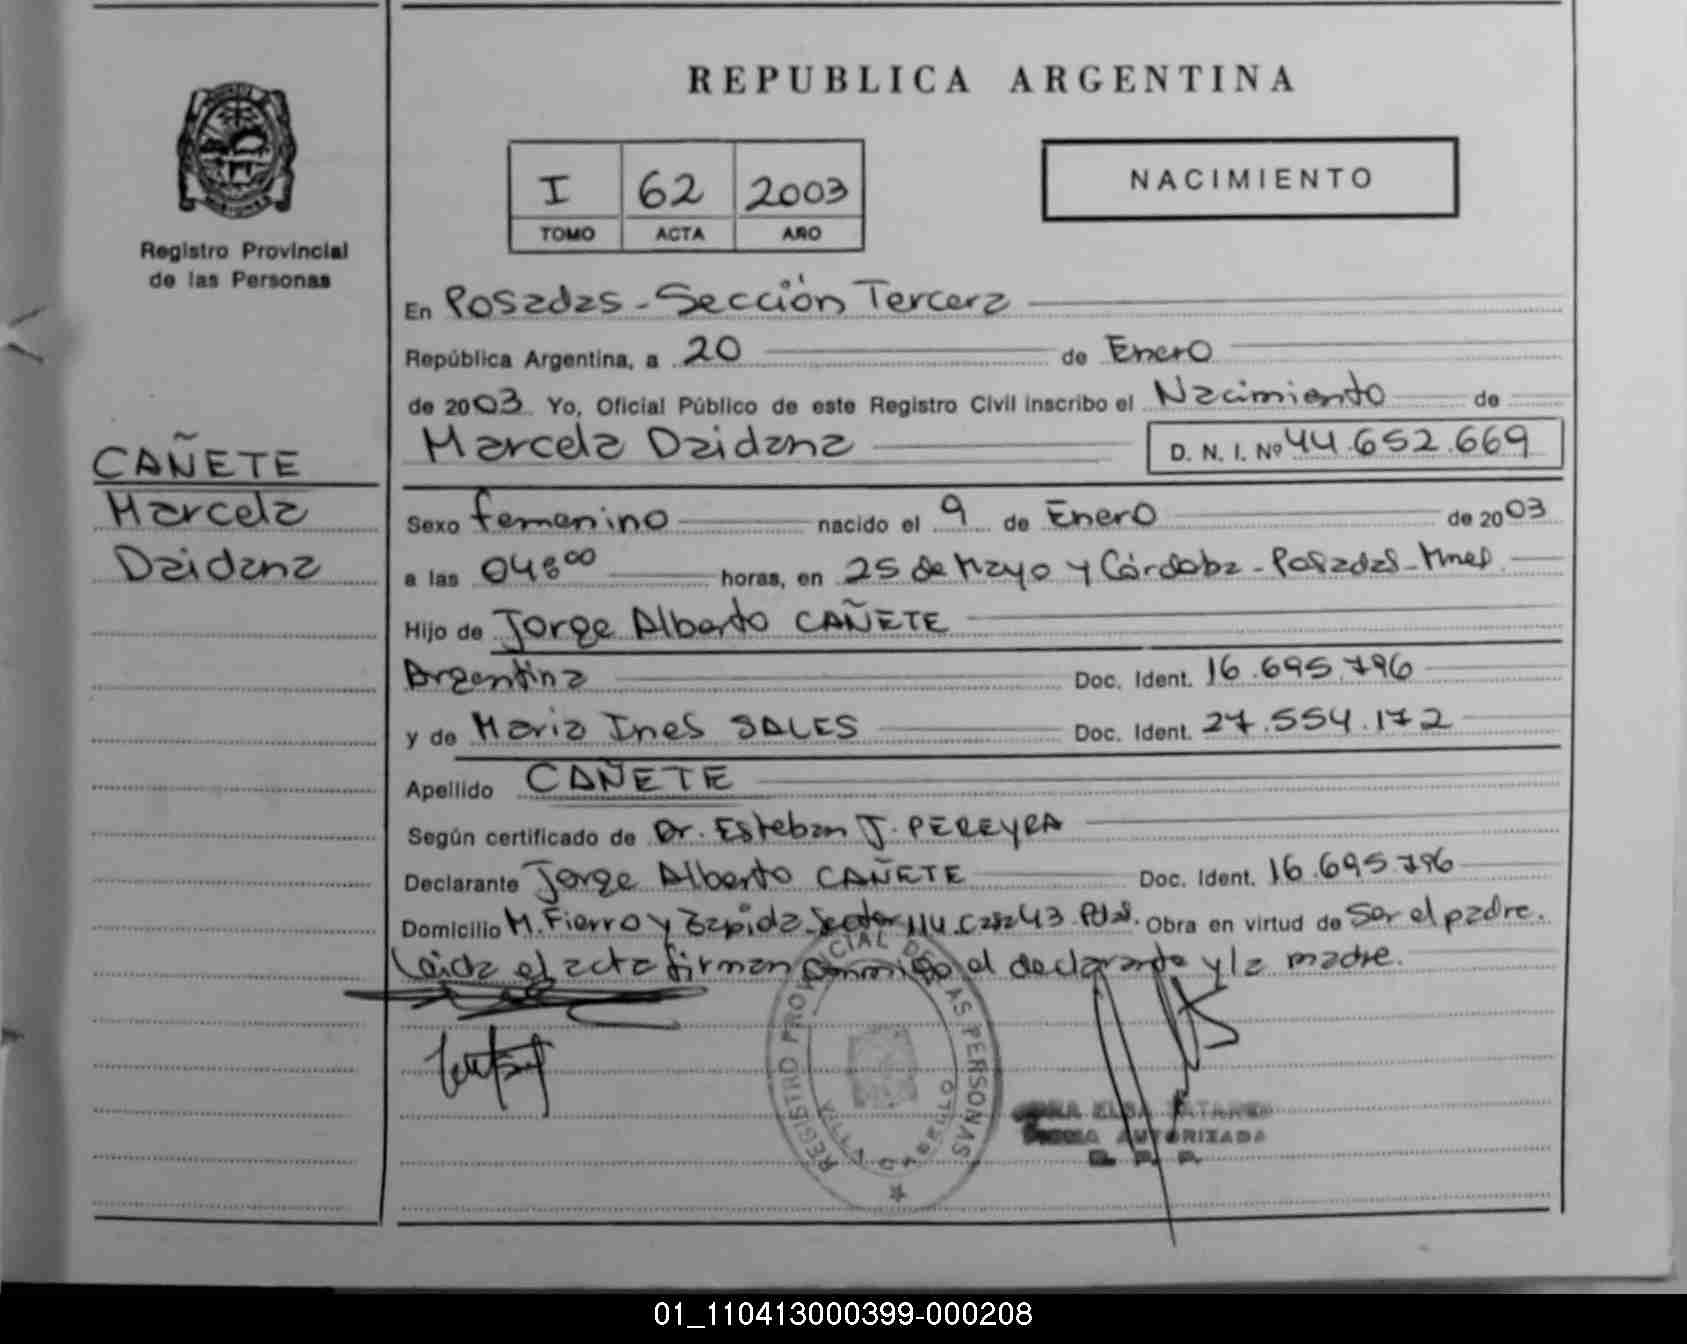 REPUBLICA ARGENTINA
I 62 2003
TOMO ACTA AÑO
NACIMIENTO
Registro Provincial
de las Personas
CAÑETE
Marcela
Daidana
En Posadas - Sección Tercera
República Argentina, a 20 de Enero
de 2003 Yo, Oficial Público de este Registro Civil inscribo el Nacimiento de
Marcela Daidana D. N. I. Nº 44.652.669
Sexo femenino nacido el 9 de Enero de 2003
a las 04:00 horas, en 25 de Mayo y Córdoba - Posadas - Mnes
Hijo de Jorge Alberto CAÑETE
Argentina Doc. Ident. 16.695.796
y de Maria Ines SALES Doc. Ident. 27.554.172
Apellido CAÑETE
Según certificado de Dr. Esteban J. PEREYRA
Declarante Jorge Alberto CAÑETE Doc. Ident. 16.695.796
Domicilio M. Fierro y Zapida Sector casa 43 Pdas. Obra en virtud de Ser el padre.
Leida el acta firman conmigo el declarante y la madre.
REGISTRO PROVINCIAL DE LAS PERSONAS
VILLA CABELLO
ELSA
FIRMA AUTORIZADA
R. P. P.
01_110413000399-000208